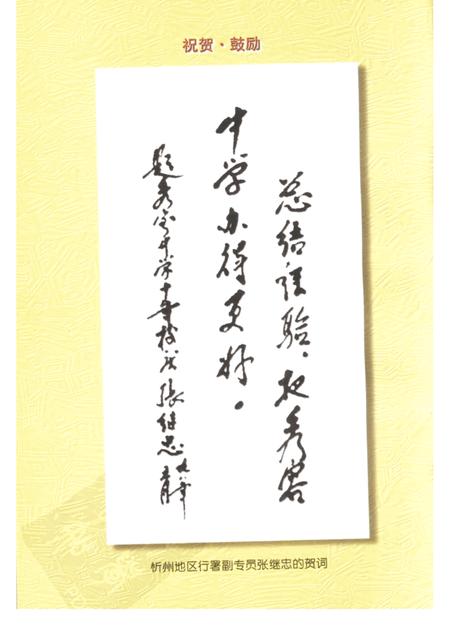 祝贺·鼓励
总结经验，把秀容
中学办得更好。
题秀容中学十年校庆 张继忠
忻州地区行署副专员张继忠的贺词